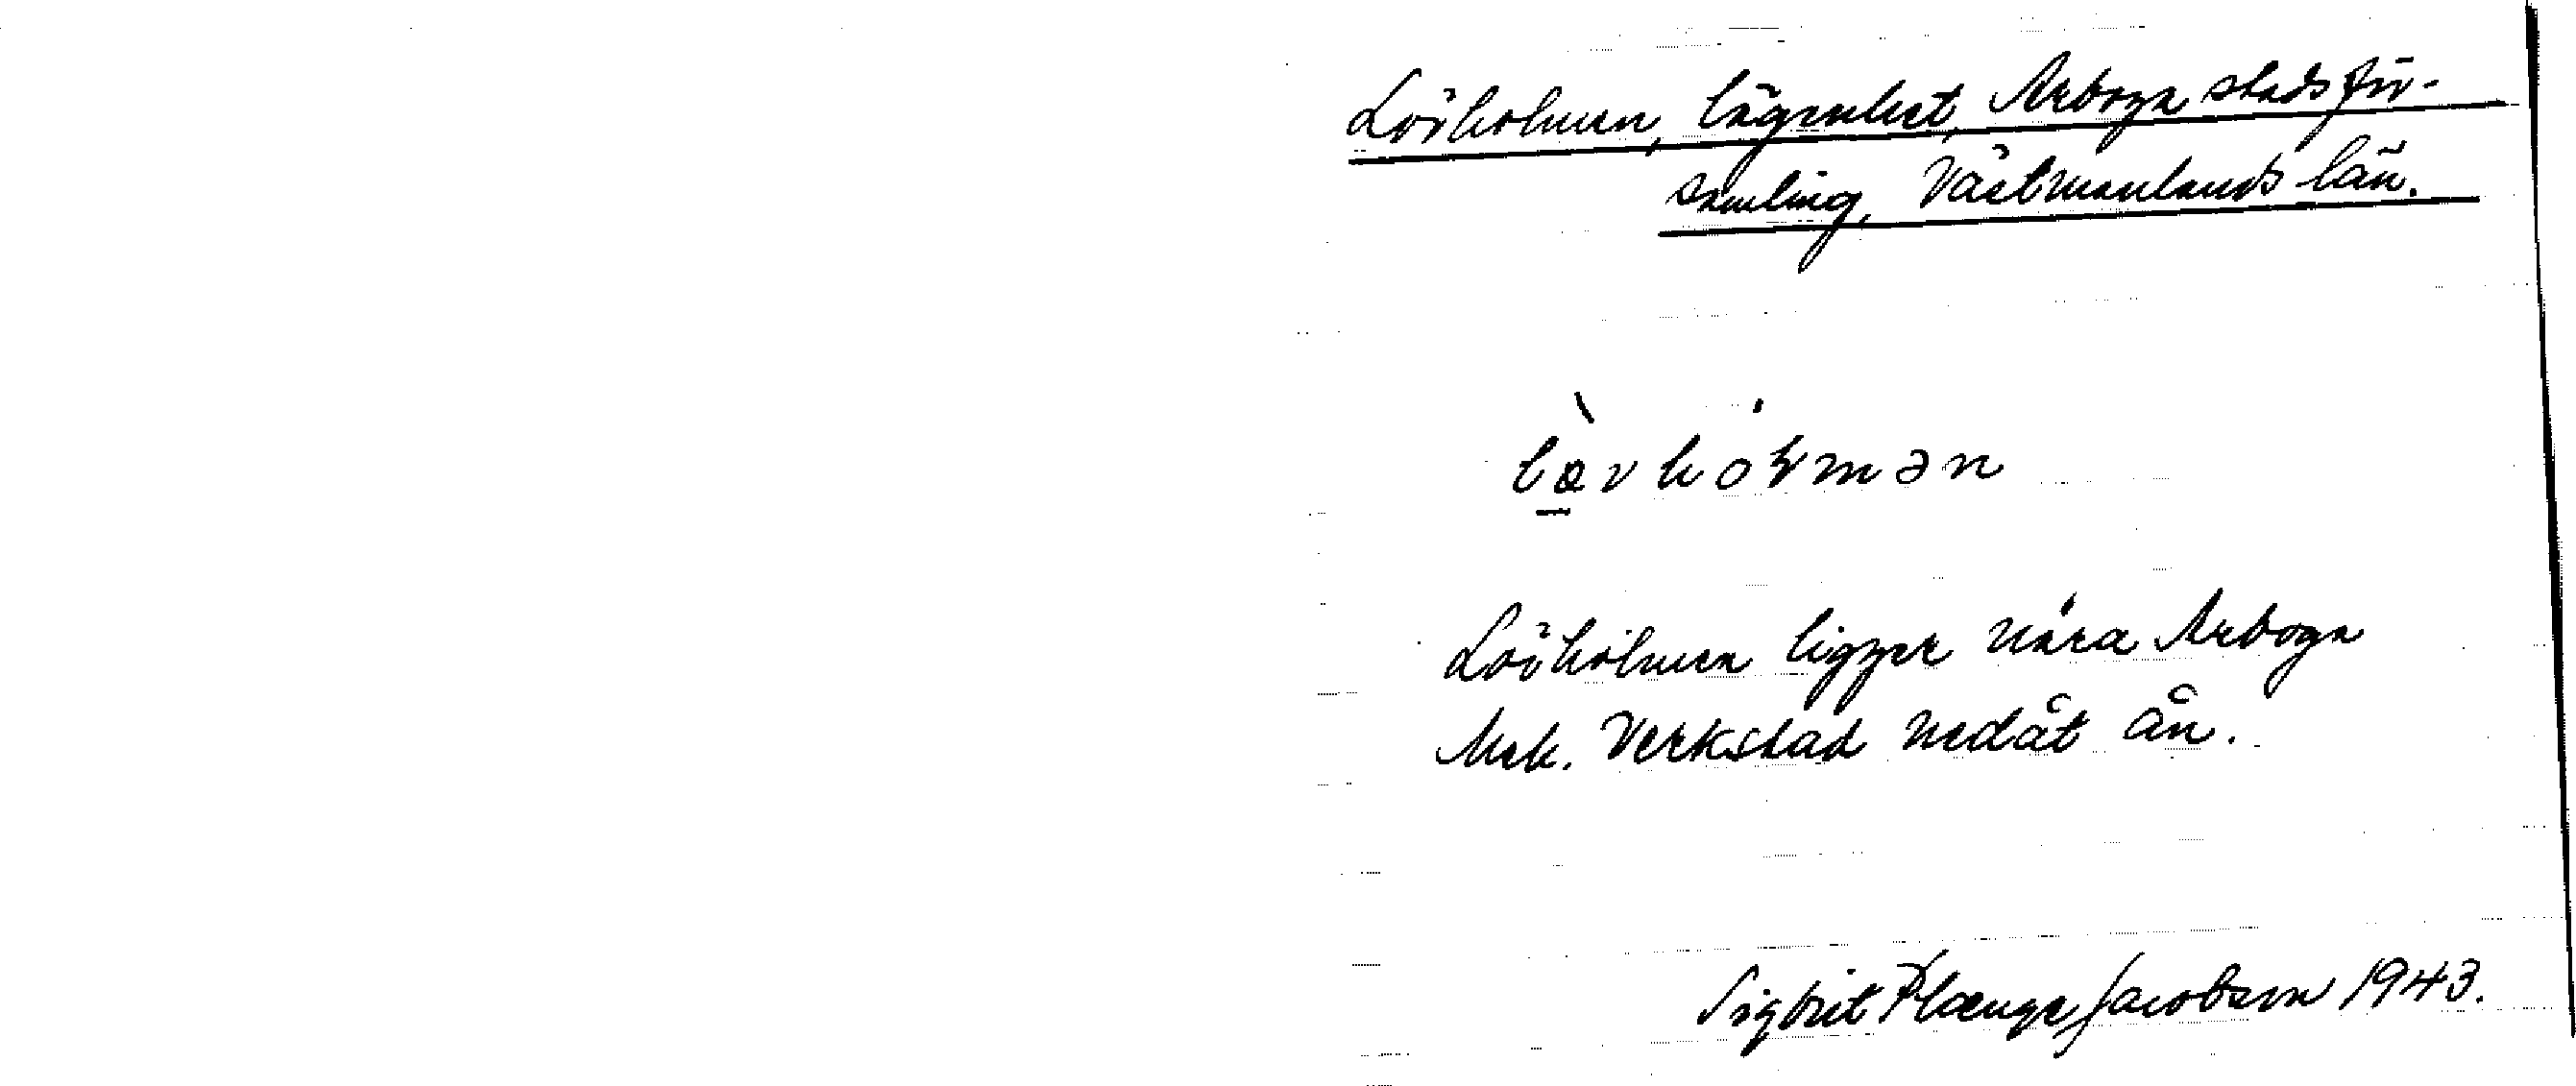 Lövholmen, lägenhet, Arboga stadsför-
samling, Västmanlands län.
lǿvhɔ́ɫmən
Lövholmen ligger nära Arboga
Mek. Verkstad nedåt ån.
Sigbrit Plænge Jacobson 1943.